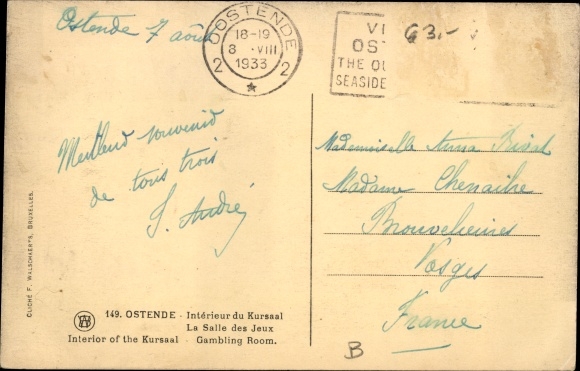 Ostende 7 août
OOSTENDE
18-19
8 · VIII
1933
2 2
VI
OST
THE QU
SEASIDE
63.-
Meilleur souvenir
de tous trois
S. André
Mademoiselle Anna Rivat
Madame
Vosges
France
CLICHÉ F. WALSCHAERTS, BRUXELLES.
149. OSTENDE - Intérieur du Kursaal
La Salle des Jeux
Interior of the Kursaal - Gambling Room.
B